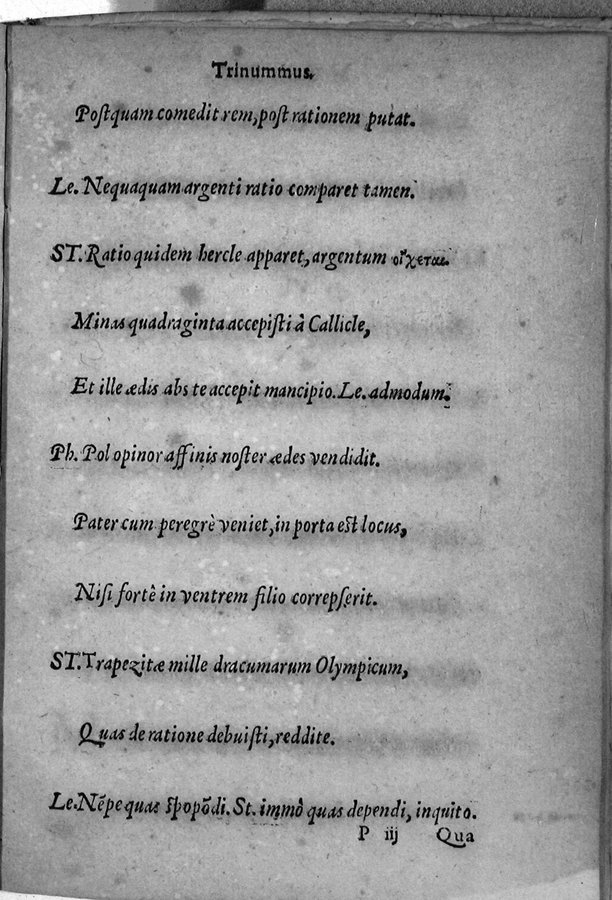 Trinummus.
Postquam comedit rem, post rationem putat.
Le. Nequaquam argenti ratio comparet tamen.
ST. Ratio quidem hercle apparet, argentum οἴχεται.
Minas quadraginta accepisti à Callicle,
Et ille ædis abs te accepit mancipio. Le. admodum.
Ph. Pol opinor affinis noster ædes vendidit.
Pater cum peregrè veniet, in porta est locus,
Nisi fortè in ventrem filio correpserit.
ST. Trapezitæ mille dracumarum Olympicum,
Quas de ratione debuisti, reddite.
Le. Nẽpe quas spopõdi. St. immò quas dependi, inquito.
P iij Qua